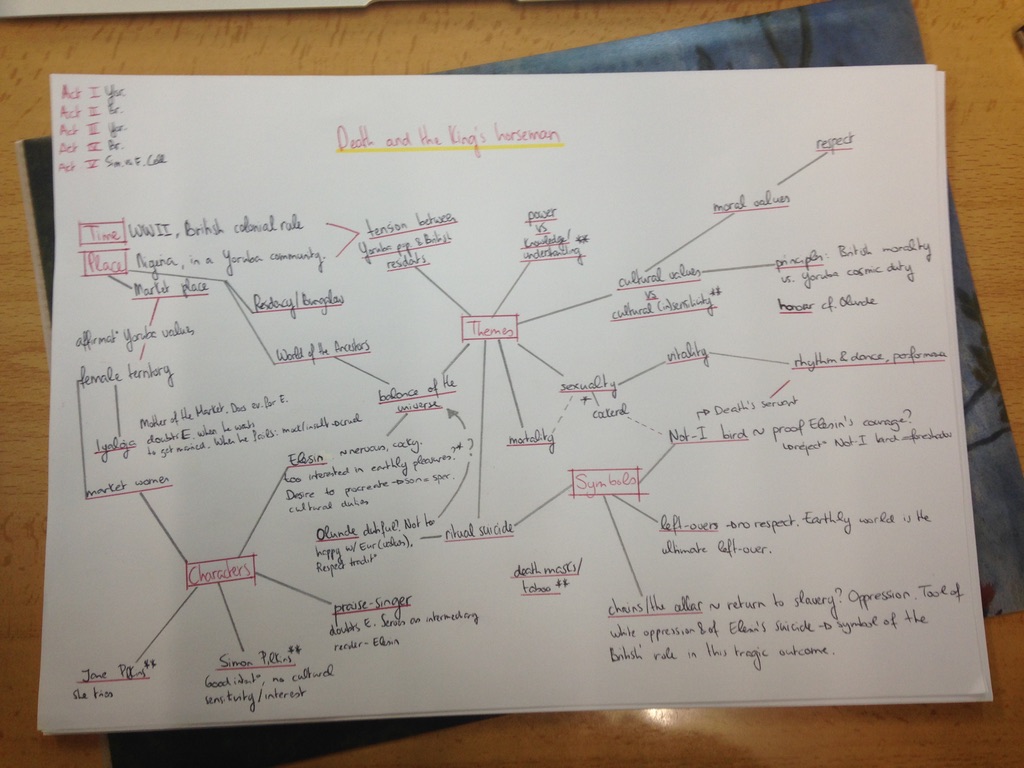 Act I Yor.
Act II Br.
Act III Yor.
Act IV Br.
Act V Sim. & E. Cell
Death and the King's horseman
respect
moral values
Time WWII, British colonial rule
tension between
Yoruba pop & British
residents
power
vs
knowledge/
understanding **
Place Nigeria, in a Yoruba community.
Market place
Residacy/Bungalow
cultural values
vs
cultural (in)sensitivity **
principles: British morality
vs. Yoruba cosmic duty
honour cf. Olunde
Themes
affirmat° Yoruba values
World of the Ancestors
female territory
balance of the
universe
sexuality
*
vitality
rhythm & dance, performance
Iyaloja
Mother of the Market. Does ev. for E.
doubts E. when he wants
to get married. When he fails: mock/insult → cruel
mortality
→ Death's servant
Not-I bird ~ proof Elesin's courage?
market women
Elesin ~ nervous, cocky.
too interested in earthly pleasures?** ?
Desire to procreate → son = sper.
cultural duties
Symbols
Olunde dutiful? Not too
happy w/ Eur (values),
Respect tradit°
ritual suicide
left-overs → no respect. Earthly world is the
ultimate left-over.
Characters
death masks/
taboo **
praise-singer
doubts E. Serves an intermediary
reader - Elesin
chains/the cellar ~ return to slavery? Oppression. Tool of
white oppression & of Elesin's suicide → symbol of the
British' role in this tragic outcome.
Jane Pilkins **
she tries
Simon Pilkins **
Good intent°, no cultural
sensitivity/interest